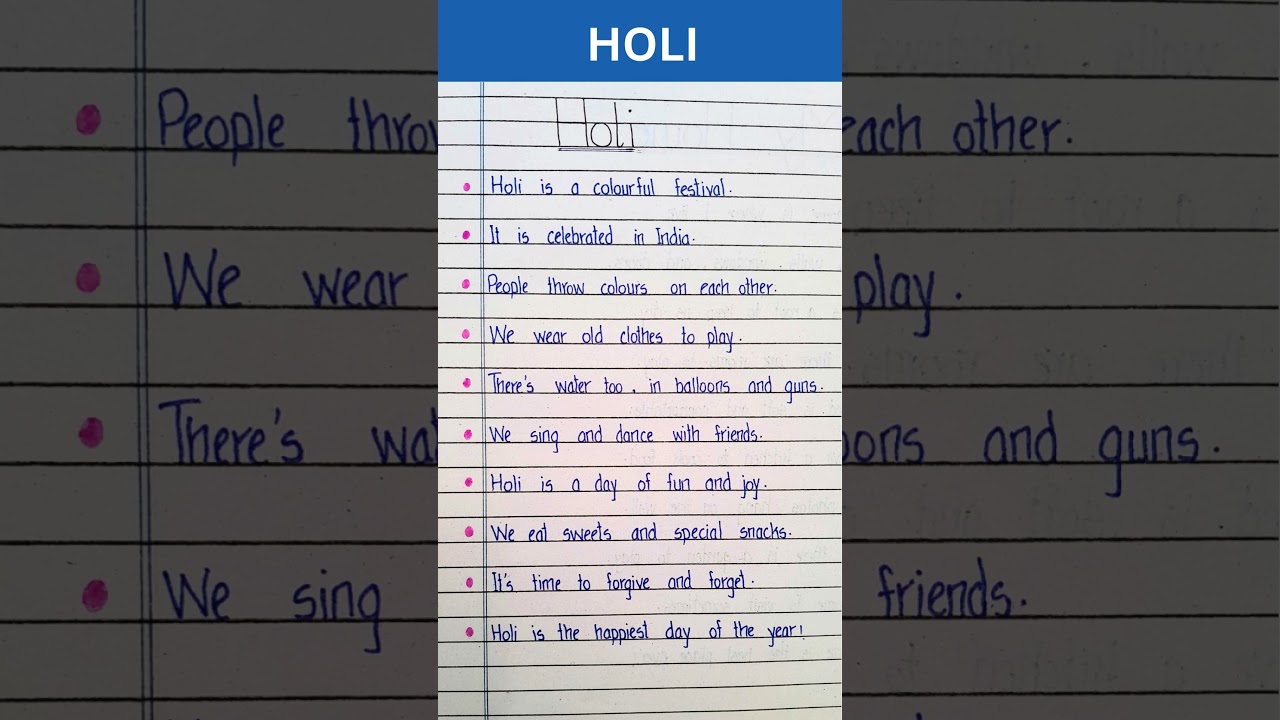 HOLI
Holi
Holi is a colourful festival.
It is celebrated in India.
People throw colours on each other.
We wear old clothes to play.
There's water too, in balloons and guns.
We sing and dance with friends.
Holi is a day of fun and joy.
We eat sweets and special snacks.
It's time to forgive and forget.
Holi is the happiest day of the year!
People throw each other.
We wear play.
There's and guns.
We sing friends.